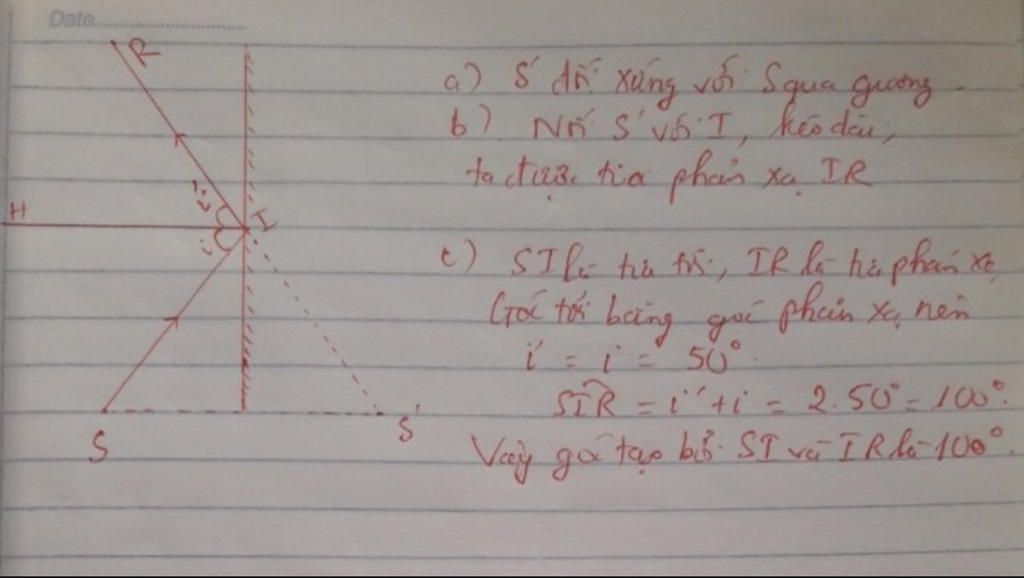 Date
R
a) S' đối xứng với S qua gương.
b) Nối S' với I, kéo dài,
ta được tia phản xạ IR
i'
H
I
i
c) SI là tia tới, IR là tia phản xạ
Góc tới bằng góc phản xạ nên
i' = i = 50°.
SIR = i' + i = 2.50° = 100°.
S
S'
Vậy góc tạo bởi SI và IR là 100°.